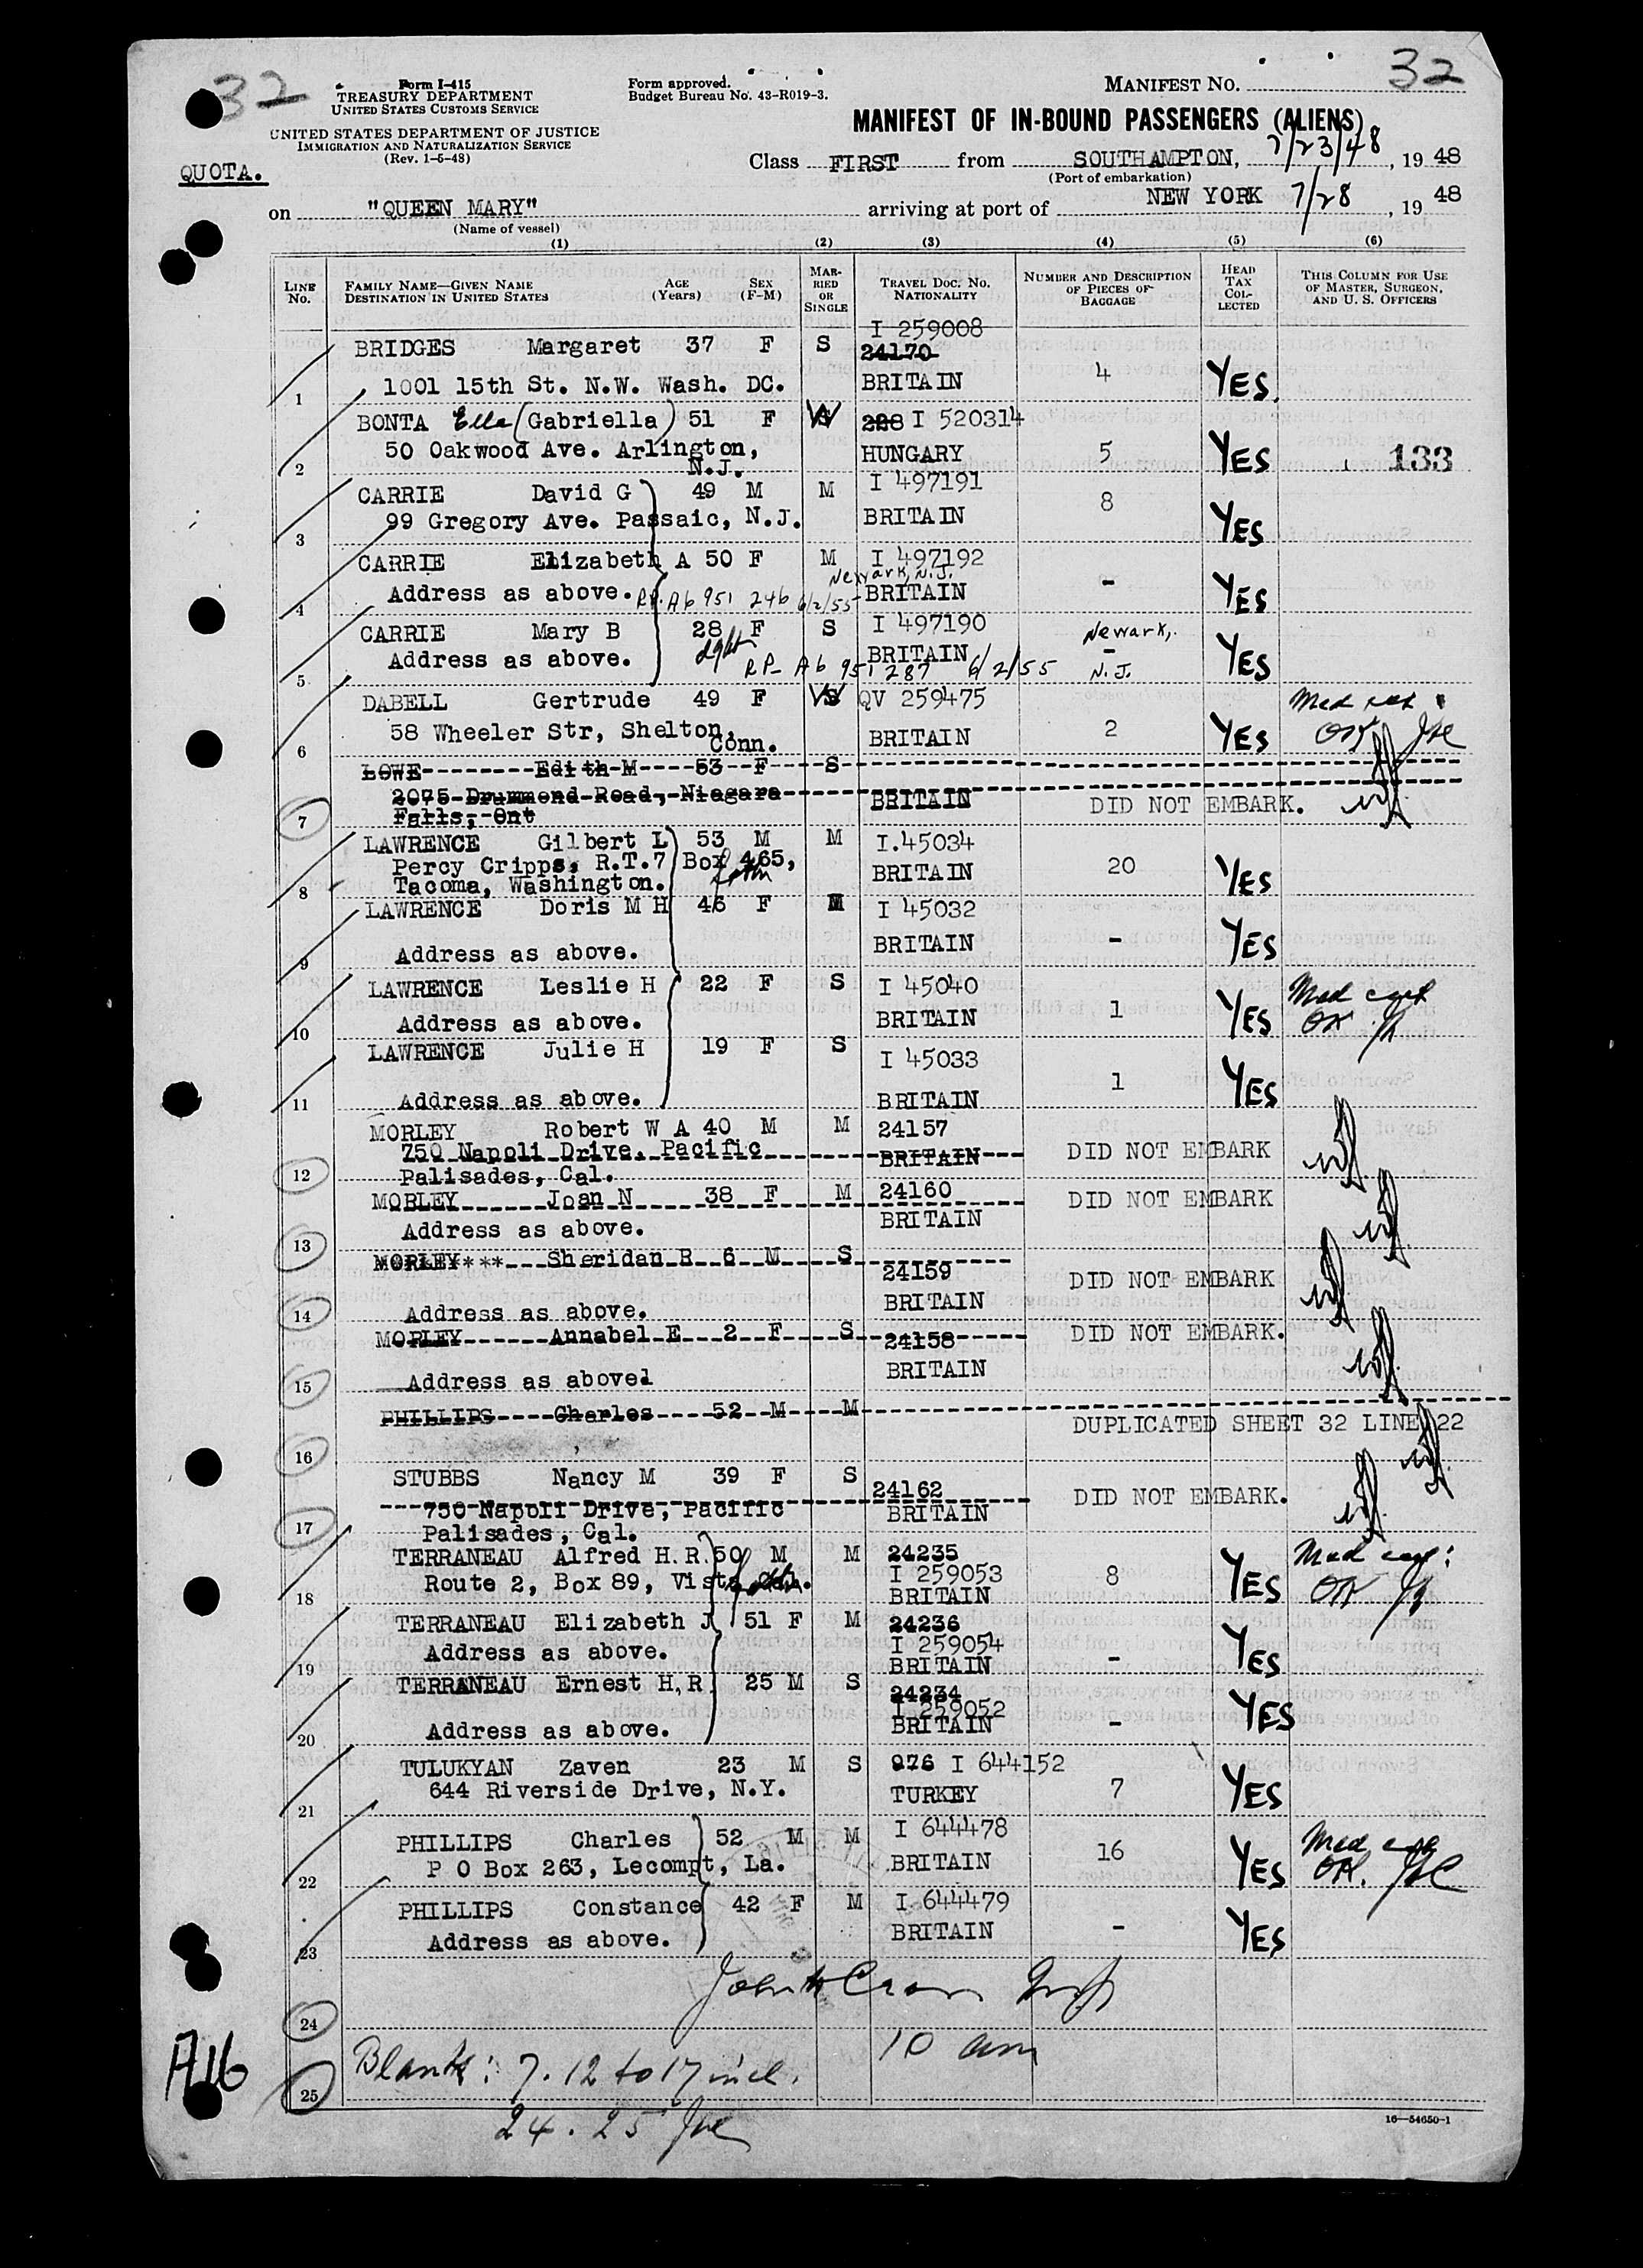 32
Form I-415
TREASURY DEPARTMENT
UNITED STATES CUSTOMS SERVICE
UNITED STATES DEPARTMENT OF JUSTICE
IMMIGRATION AND NATURALIZATION SERVICE
(Rev. 1-5-48)
QUOTA.
Form approved.
Budget Bureau No. 43-R019-3.
MANIFEST NO. 32
MANIFEST OF IN-BOUND PASSENGERS (ALIENS)
Class FIRST from SOUTHAMPTON, 7/23/48, 19 48
(Port of embarkation)
on "QUEEN MARY" arriving at port of NEW YORK 7/28, 19 48
(Name of vessel)
(1) (2) (3) (4) (5) (6)
LINE No. FAMILY NAME—GIVEN NAME DESTINATION IN UNITED STATES AGE (Years) SEX (F-M) MARRIED OR SINGLE TRAVEL DOC. NO. NATIONALITY NUMBER AND DESCRIPTION OF PIECES OF BAGGAGE HEAD TAX COLLECTED THIS COLUMN FOR USE OF MASTER, SURGEON, AND U. S. OFFICERS
I 259008
BRIDGES Margaret 37 F S 24170
1 1001 15th St. N.W. Wash. DC. BRITAIN 4 YES
BONTA Ella (Gabriella) 51 F W 228 I 520314
50 Oakwood Ave. Arlington, HUNGARY 5 YES 133
2 N.J.
CARRIE David G 49 M M I 497191 8
3 99 Gregory Ave. Passaic, N.J. BRITAIN YES
CARRIE Elizabeth A 50 F M I 497192
Newark, N.J.
4 Address as above. RP. A6 951 246 6/2/55 BRITAIN - YES
CARRIE Mary B 28 F S I 497190 Newark,
Address as above. dght BRITAIN - YES
5 RP- A6 951 287 6/2/55 N.J.
DABELL Gertrude 49 F W QV 259475 Med
6 58 Wheeler Str, Shelton, Conn. BRITAIN 2 YES OK
LOWE Edith M 53 F S
2075 Drummond Road, Niagara BRITAIN DID NOT EMBARK.
7 Falls, Ont
LAWRENCE Gilbert L 53 M M I.45034
Percy Cripps, R.T.7 Box 465, BRITAIN 20 YES
8 Tacoma, Washington.
LAWRENCE Doris M H 46 F M I 45032
9 Address as above. BRITAIN - YES
LAWRENCE Leslie H 22 F S I 45040 Med
10 Address as above. BRITAIN 1 YES OK
LAWRENCE Julie H 19 F S I 45033
11 Address as above. BRITAIN 1 YES
MORLEY Robert W A 40 M M 24157
750 Napoli Drive, Pacific BRITAIN DID NOT EMBARK
12 Palisades, Cal.
MORLEY Joan N 38 F M 24160 DID NOT EMBARK
13 Address as above. BRITAIN
MORLEY*** Sheridan R 6 M S 24159 DID NOT EMBARK
14 Address as above. BRITAIN
MORLEY Annabel E 2 F S 24158 DID NOT EMBARK.
15 Address as abovel BRITAIN
PHILLIPS Charles 52 M M
16 DUPLICATED SHEET 32 LINE 22
STUBBS Nancy M 39 F S 24162 DID NOT EMBARK.
17 750 Napoli Drive, Pacific BRITAIN
Palisades, Cal.
TERRANEAU Alfred H.R. 50 M M 24235 Med
Route 2, Box 89, Vista I 259053 8 YES OK
18 BRITAIN
TERRANEAU Elizabeth J 51 F M 24236
Address as above. I 259054 - YES
19 BRITAIN
TERRANEAU Ernest H,R 25 M S 24234
I 259052
20 Address as above. BRITAIN - YES
TULUKYAN Zaven 23 M S 976 I 644152
21 644 Riverside Drive, N.Y. TURKEY 7 YES
PHILLIPS Charles 52 M M I 644478 Med
22 P O Box 263, Lecompt, La. BRITAIN 16 YES OK.
PHILLIPS Constance 42 F M I 644479
23 Address as above. BRITAIN - YES
24
10 am
A16
25 Blank: 7. 12 to 17 incl.
24. 25
16—54650-1